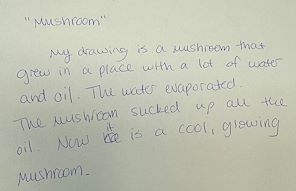 "Mushroom"
My drawing is a mushroom that
grew in a place with a lot of water
and oil. The water evaporated.
The mushroom sucked up all the
oil. Now it is a cool, glowing
mushroom.